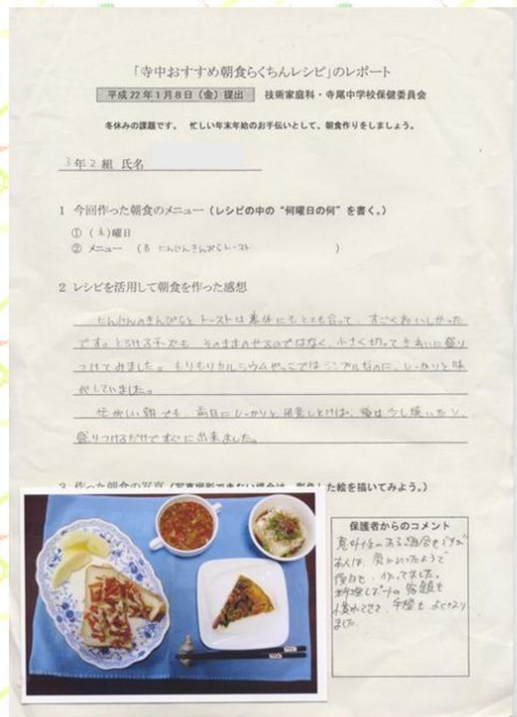 「寺中おすすめ朝食らくちんレシピ」のレポート
平成22年1月8日(金)提出 技術家庭科・寺尾中学校保健委員会
冬休みの課題です。 忙しい年末年始のお手伝いとして、朝食作りをしましょう。
3年2組 氏名
1 今回作った朝食のメニュー(レシピの中の“何曜日の何”を書く。)
① ( )曜日
② メニュー (B にんじんきんぴらトースト )
2 レシピを活用して朝食を作った感想
にんじんのきんぴらとトーストは意外にもとても合って、すごくおいしかった
です。とろけるチーズも、そのままのせるのではなく、小さく切ってきれいに盛り
つけてみました。もりもりカルシウムやっこではシンプルなのに、しっかりと味
がしていました。
忙しい朝でも、前日にしっかりと用意しとけば、後は少し焼いたり、
盛りつけるだけですぐに出来ました。
3 作った朝食の写真(写真撮影できない場合は、 した絵を描いてみよう。)
保護者からのコメント
意外性のある組合せですが
本人は、気に入ったようで
後日も、作ってました。
料理レポートの宿題も
慣れてきて、手際もよくなり
ました。